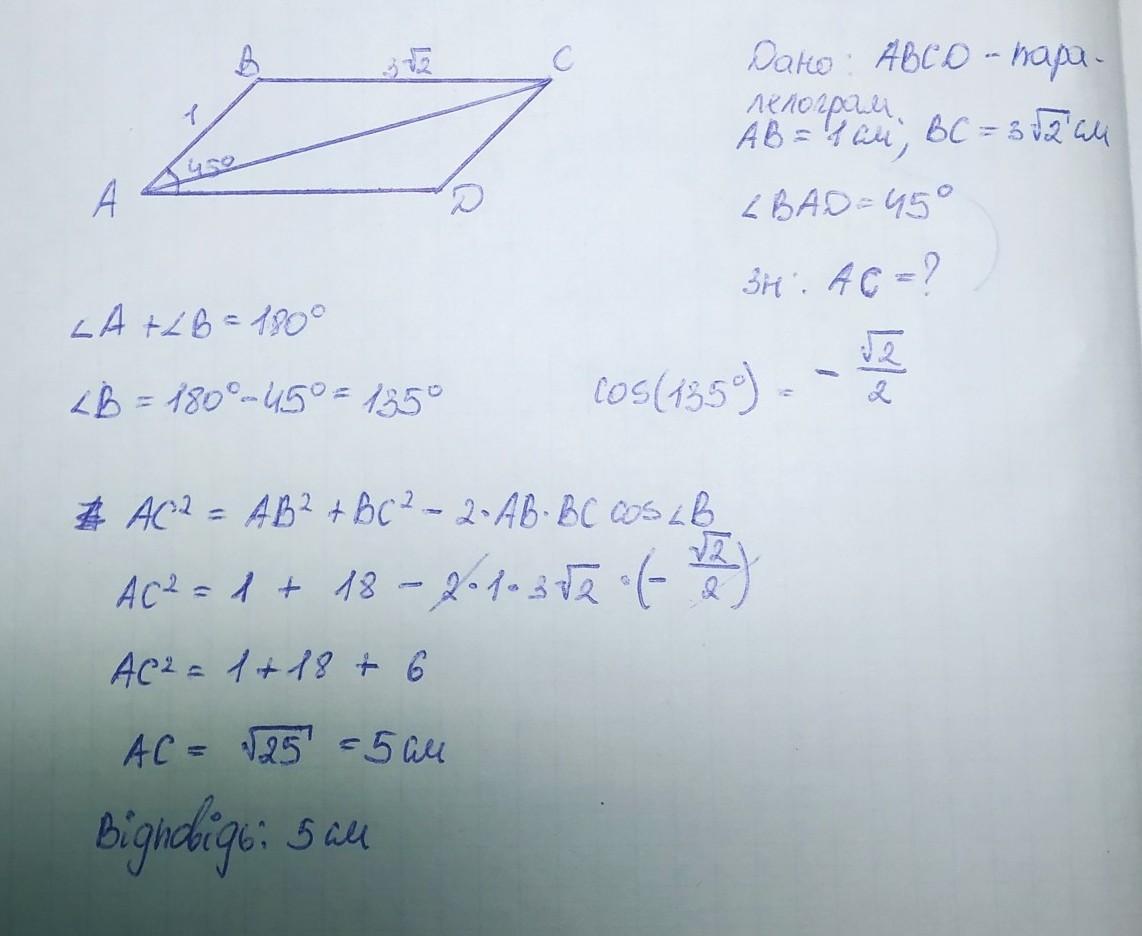 B 3√2 C
1
45°
A D
Дано: ABCD - пара-
лелограм.
AB = 1 см; BC = 3√2 см
∠BAD = 45°
Зн: AC = ?
∠A + ∠B = 180°
∠B = 180° - 45° = 135°
cos(135°) = - √2/2
AC² = AB² + BC² - 2·AB·BC cos∠B
AC² = 1 + 18 - 2·1·3√2 ·(- √2/2)
AC² = 1 + 18 + 6
AC = √25 = 5 см
Відповідь: 5 см